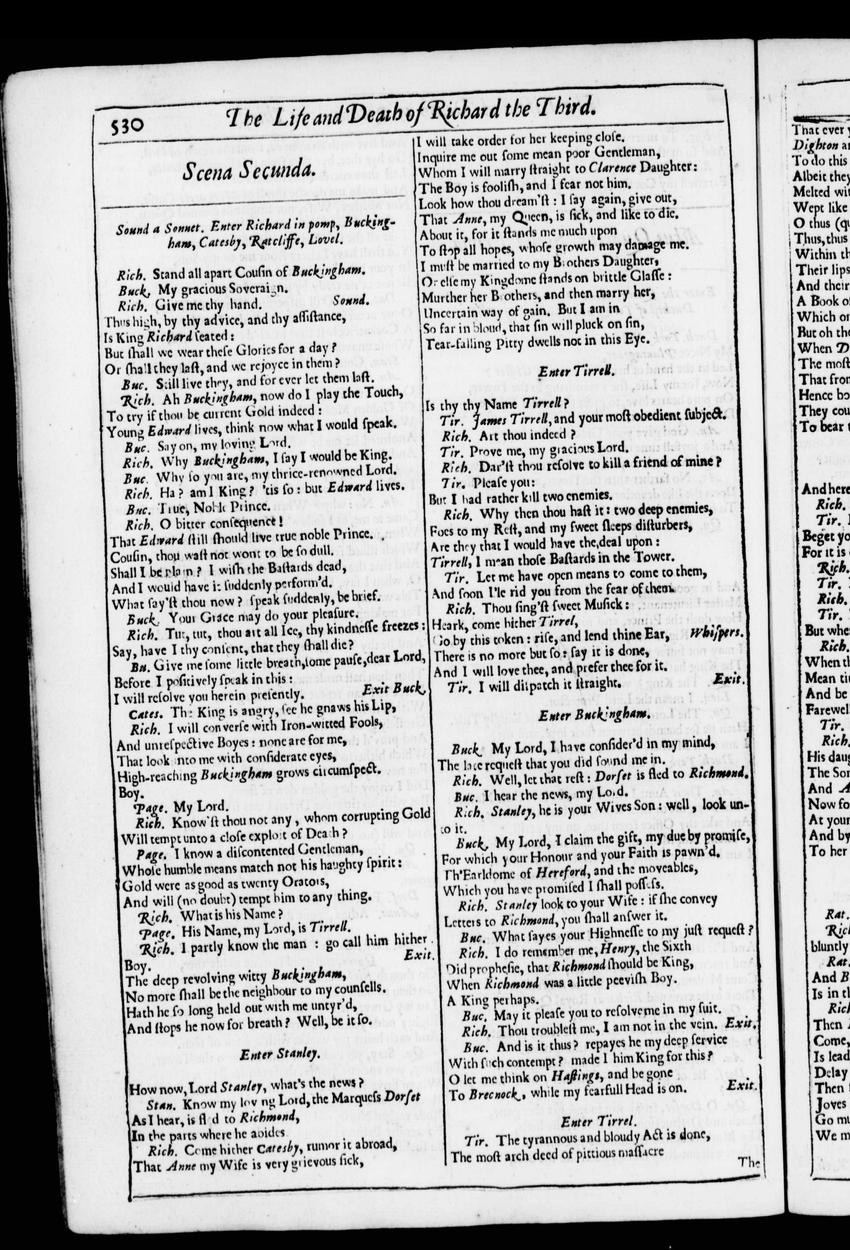 530
The Life and Death of Richard the Third.
Scena Secunda.
Sound a Sonnet. Enter Richard in pomp, Bucking-
ham, Catesby, Ratcliffe, Lovel.
Rich. Stand all apart Cousin of Buckingham.
Buck. My gracious Soveraign.
Rich. Give me thy hand. Sound.
Thus high, by thy advice, and thy assistance,
Is King Richard seated:
But shall we wear these Glories for a day?
Or shall they last, and we rejoyce in them?
Buc. Still live they, and for ever let them last.
Rich. Ah Buckingham, now do I play the Touch,
To try if thou be current Gold indeed:
Young Edward lives, think now what I would speak.
Buc. Say on, my loving Lord.
Rich. Why Buckingham, I say I would be King.
Buc. Why so you are, my thrice-renowned Lord.
Rich. Ha? am I King? 'tis so: but Edward lives.
Buc. True, Noble Prince.
Rich. O bitter consequence!
That Edward still should live true noble Prince.
Cousin, thou wast not wont to be so dull.
Shall I be plain? I wish the Bastards dead,
And I would have it suddenly perform'd.
What say'st thou now? speak suddenly, be brief.
Buck. Your Grace may do your pleasure.
Rich. Tut, tut, thou art all Ice, thy kindnesse freezes:
Say, have I thy consent, that they shall die?
Bu. Give me some little breath, some pause, dear Lord,
Before I positively speak in this:
I will resolve you herein presently. Exit Buck.
Cates. The King is angry, see he gnaws his Lip,
Rich. I will converse with Iron-witted Fools,
And unrespective Boyes: none are for me,
That look into me with considerate eyes,
High-reaching Buckingham grows circumspect.
Boy.
Page. My Lord.
Rich. Know'st thou not any, whom corrupting Gold
Will tempt unto a close exploit of Death?
Page. I know a discontented Gentleman,
Whose humble means match not his haughty spirit:
Gold were as good as twenty Orators,
And will (no doubt) tempt him to any thing.
Rich. What is his Name?
Page. His Name, my Lord, is Tirrell.
Rich. I partly know the man: go call him hither
Boy. Exit.
The deep revolving witty Buckingham,
No more shall be the neighbour to my counsells.
Hath he so long held out with me untyr'd,
And stops he now for breath? Well, be it so.
Enter Stanley.
How now, Lord Stanley, what's the news?
Stan. Know my loving Lord, the Marquess Dorset
As I hear, is fled to Richmond,
In the parts where he abides.
Rich. Come hither Catesby, rumor it abroad,
That Anne my Wife is very grievous sick,
I will take order for her keeping close.
Inquire me out some mean poor Gentleman,
Whom I will marry straight to Clarence Daughter:
The Boy is foolish, and I fear not him.
Look how thou dream'st: I say again, give out,
That Anne, my Queen, is sick, and like to die.
About it, for it stands me much upon
To stop all hopes, whose growth may damage me.
I must be married to my Brothers Daughter,
Or else my Kingdome stands on brittle Glasse:
Murther her Brothers, and then marry her,
Uncertain way of gain. But I am in
So far in bloud, that sin will pluck on sin,
Tear-falling Pitty dwells not in this Eye.
Enter Tirrell.
Is thy thy Name Tirrell?
Tir. James Tirrell, and your most obedient subject.
Rich. Art thou indeed?
Tir. Prove me, my gracious Lord.
Rich. Dar'st thou resolve to kill a friend of mine?
Tir. Please you:
But I had rather kill two enemies.
Rich. Why then thou hast it: two deep enemies,
Foes to my Rest, and my sweet sleeps disturbers,
Are they that I would have the, deal upon:
Tirrell, I mean those Bastards in the Tower.
Tir. Let me have open means to come to them,
And soon I'le rid you from the fear of them.
Rich. Thou sing'st sweet Musick:
Heark, come hither Tirrel,
Go by this token: rise, and lend thine Ear, Whispers.
There is no more but so: say it is done,
And I will love thee, and prefer thee for it.
Tir. I will dispatch it straight. Exit.
Enter Buckingham.
Buck. My Lord, I have consider'd in my mind,
The late request that you did sound me in.
Rich. Well, let that rest: Dorset is fled to Richmond.
Buc. I hear the news, my Lord.
Rich. Stanley, he is your Wives Son: well, look un-
to it.
Buck. My Lord, I claim the gift, my due by promise,
For which your Honour and your Faith is pawn'd,
Th'Earldome of Hereford, and the moveables,
Which you have promised I shall possess.
Rich. Stanley look to your Wife: if she convey
Letters to Richmond, you shall answer it.
Buc. What sayes your Highnesse to my just request?
Rich. I do remember me, Henry, the Sixth
Did prophesie, that Richmond should be King,
When Richmond was a little peevish Boy.
A King perhaps.
Buc. May it please you to resolve me in my suit.
Rich. Thou troublest me, I am not in the vein. Exit.
Buc. And is it thus? repayes he my deep service
With such contempt? made I him King for this?
O let me think on Hastings, and be gone
To Brecnock, while my fearfull Head is on. Exit.
Enter Tirrel.
Tir. The tyrannous and bloudy Act is done,
The most arch deed of pittious massacre
The
That ever
Dighton
To do this
Albeit they
Melted
Wept like
O thus
Thus, thus
Within
Their lips
And their
A Book
Which
But oh
When
The most
That from
Hence
They
To bear
And here
Rich.
Tir.
Beget
For it is
Rich.
Tir.
Rich.
Tir.
But
Rich.
When
Mean
And be
Farewel
Tir.
Rich.
His
The
And
Now
At your
And by
To her
Rat.
bluntly
Rat.
And
Is in
Rich
Then
Come,
Is
Delay
Then
Joves
Go
We